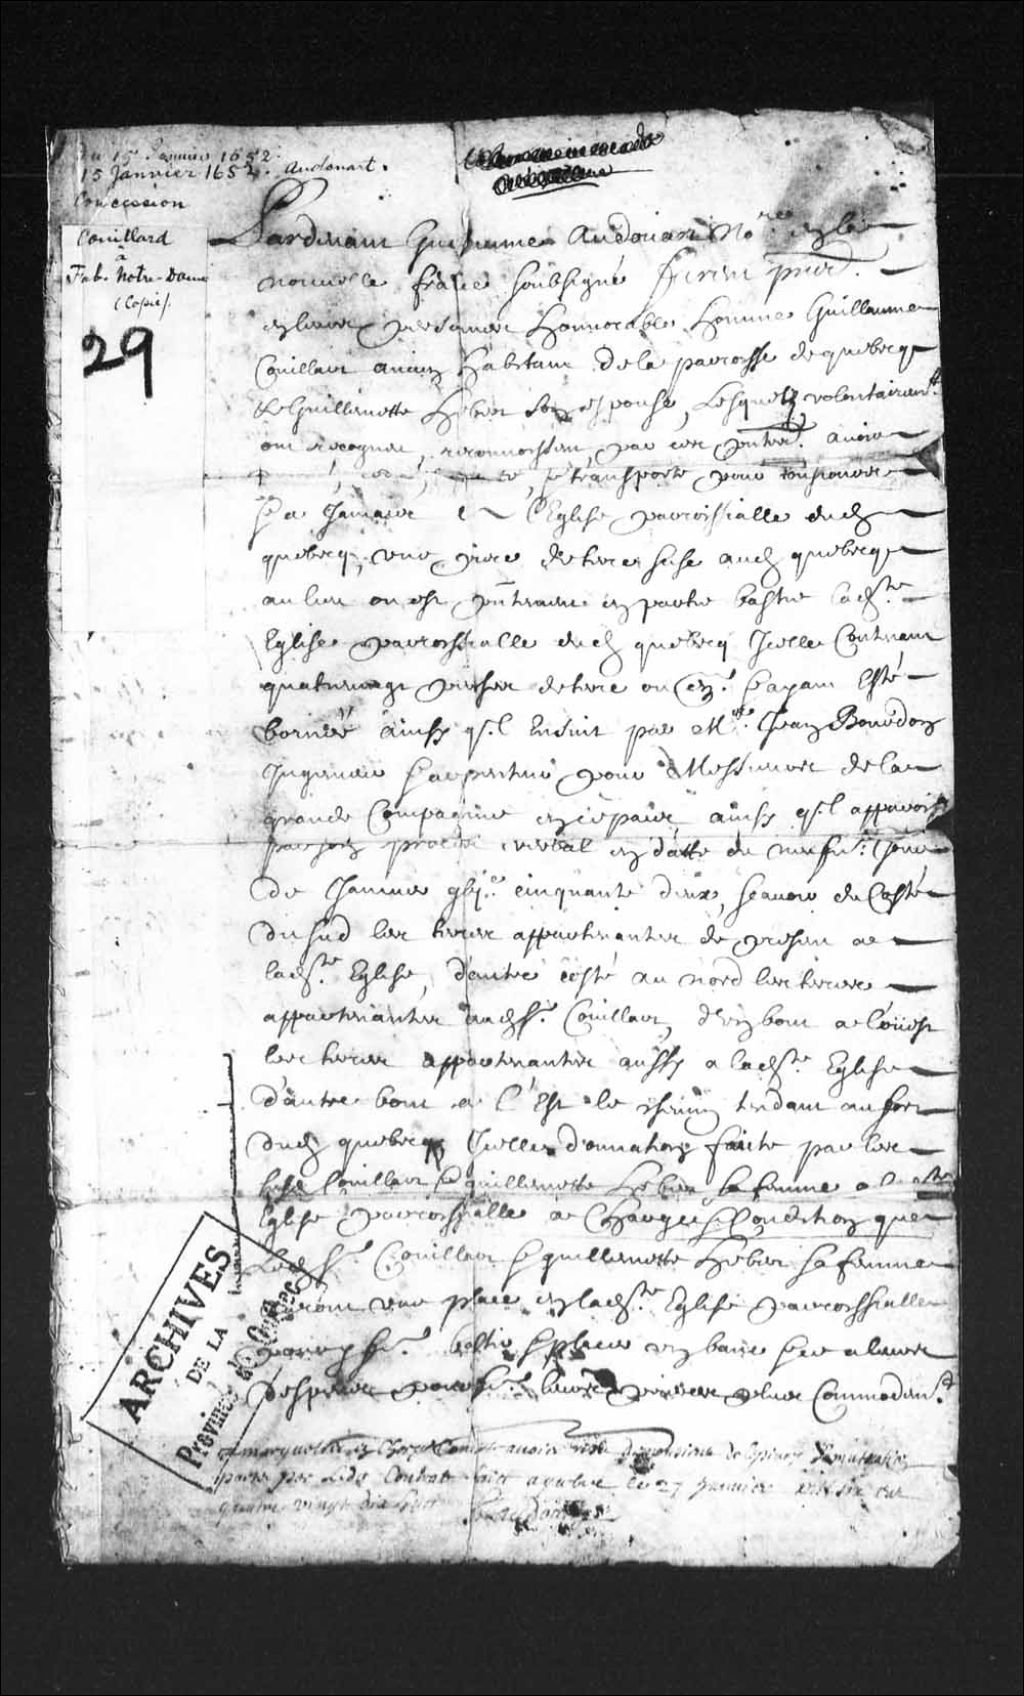 Du 15 Janvier 1652
15 Janvier 1652. Audouart.
Concession
Couillard
à
Fab. Notre-Dame
(Copie).
29
Pardevant Guillaume Audouart No.re en la
nouvelle france soubsigné furent pnts.
en leurs personnes honnorable homme Guillaume
Couillart ancien habitant de la parroisse de quebecq
& Guillemette hebert son espouse, Lesquelz volontairemt.
ont recogneu, recognoissent par ces pntes. avoir
donné, cedé, quitté, & transporté pour tousjours
& a jamais a l'Eglise parroissialle dud
quebecq, une piece de terre sise aud quebecq
au lieu ou est pntement en partie bastie lad.te
Eglise parroissialle dud quebecq Icelle Contenant
quatrevingt perches de terre ou en.n & ayant Esté
bornée ainsy q.l Ensuit par M.re Jean Bourdon
Ingenieur & arpenteur pour Messieurs de la
grande Compagnie en ce païs ainsy q.l apparoist
par son procés verbal en datte du neufv. Jour
de Janvier gbj.c cinquante deux, scavoir du Costé
du sud les terres appartenantes de present a
lad.te Eglise, d'autre costé au nord les terres
appartenantes aud s.r Couillart, d'un bout a l'ouest
les terres appartenantes aussy a lad.te Eglise
d'autre bout a l'Est le chemin tendant au fort
dud quebecq Icelle donnation faicte par les
susd Couillart & guillemette hebert sa femme a lad.te
Eglise parroissialle a Charge & Condition que
Led s.r Couillart & guillemette hebert sa femme
auront une place en lad.te Eglise parroissialle
pour y f.e bastir & placer un banc
pour f.e leurs prieres plus Commodem.t
Compagnie avoir
par led. Contrat fait a quebec le 27 Janvier mil six cent
quatre vingt dix huit
ARCHIVES
DE LA
Province de Québec